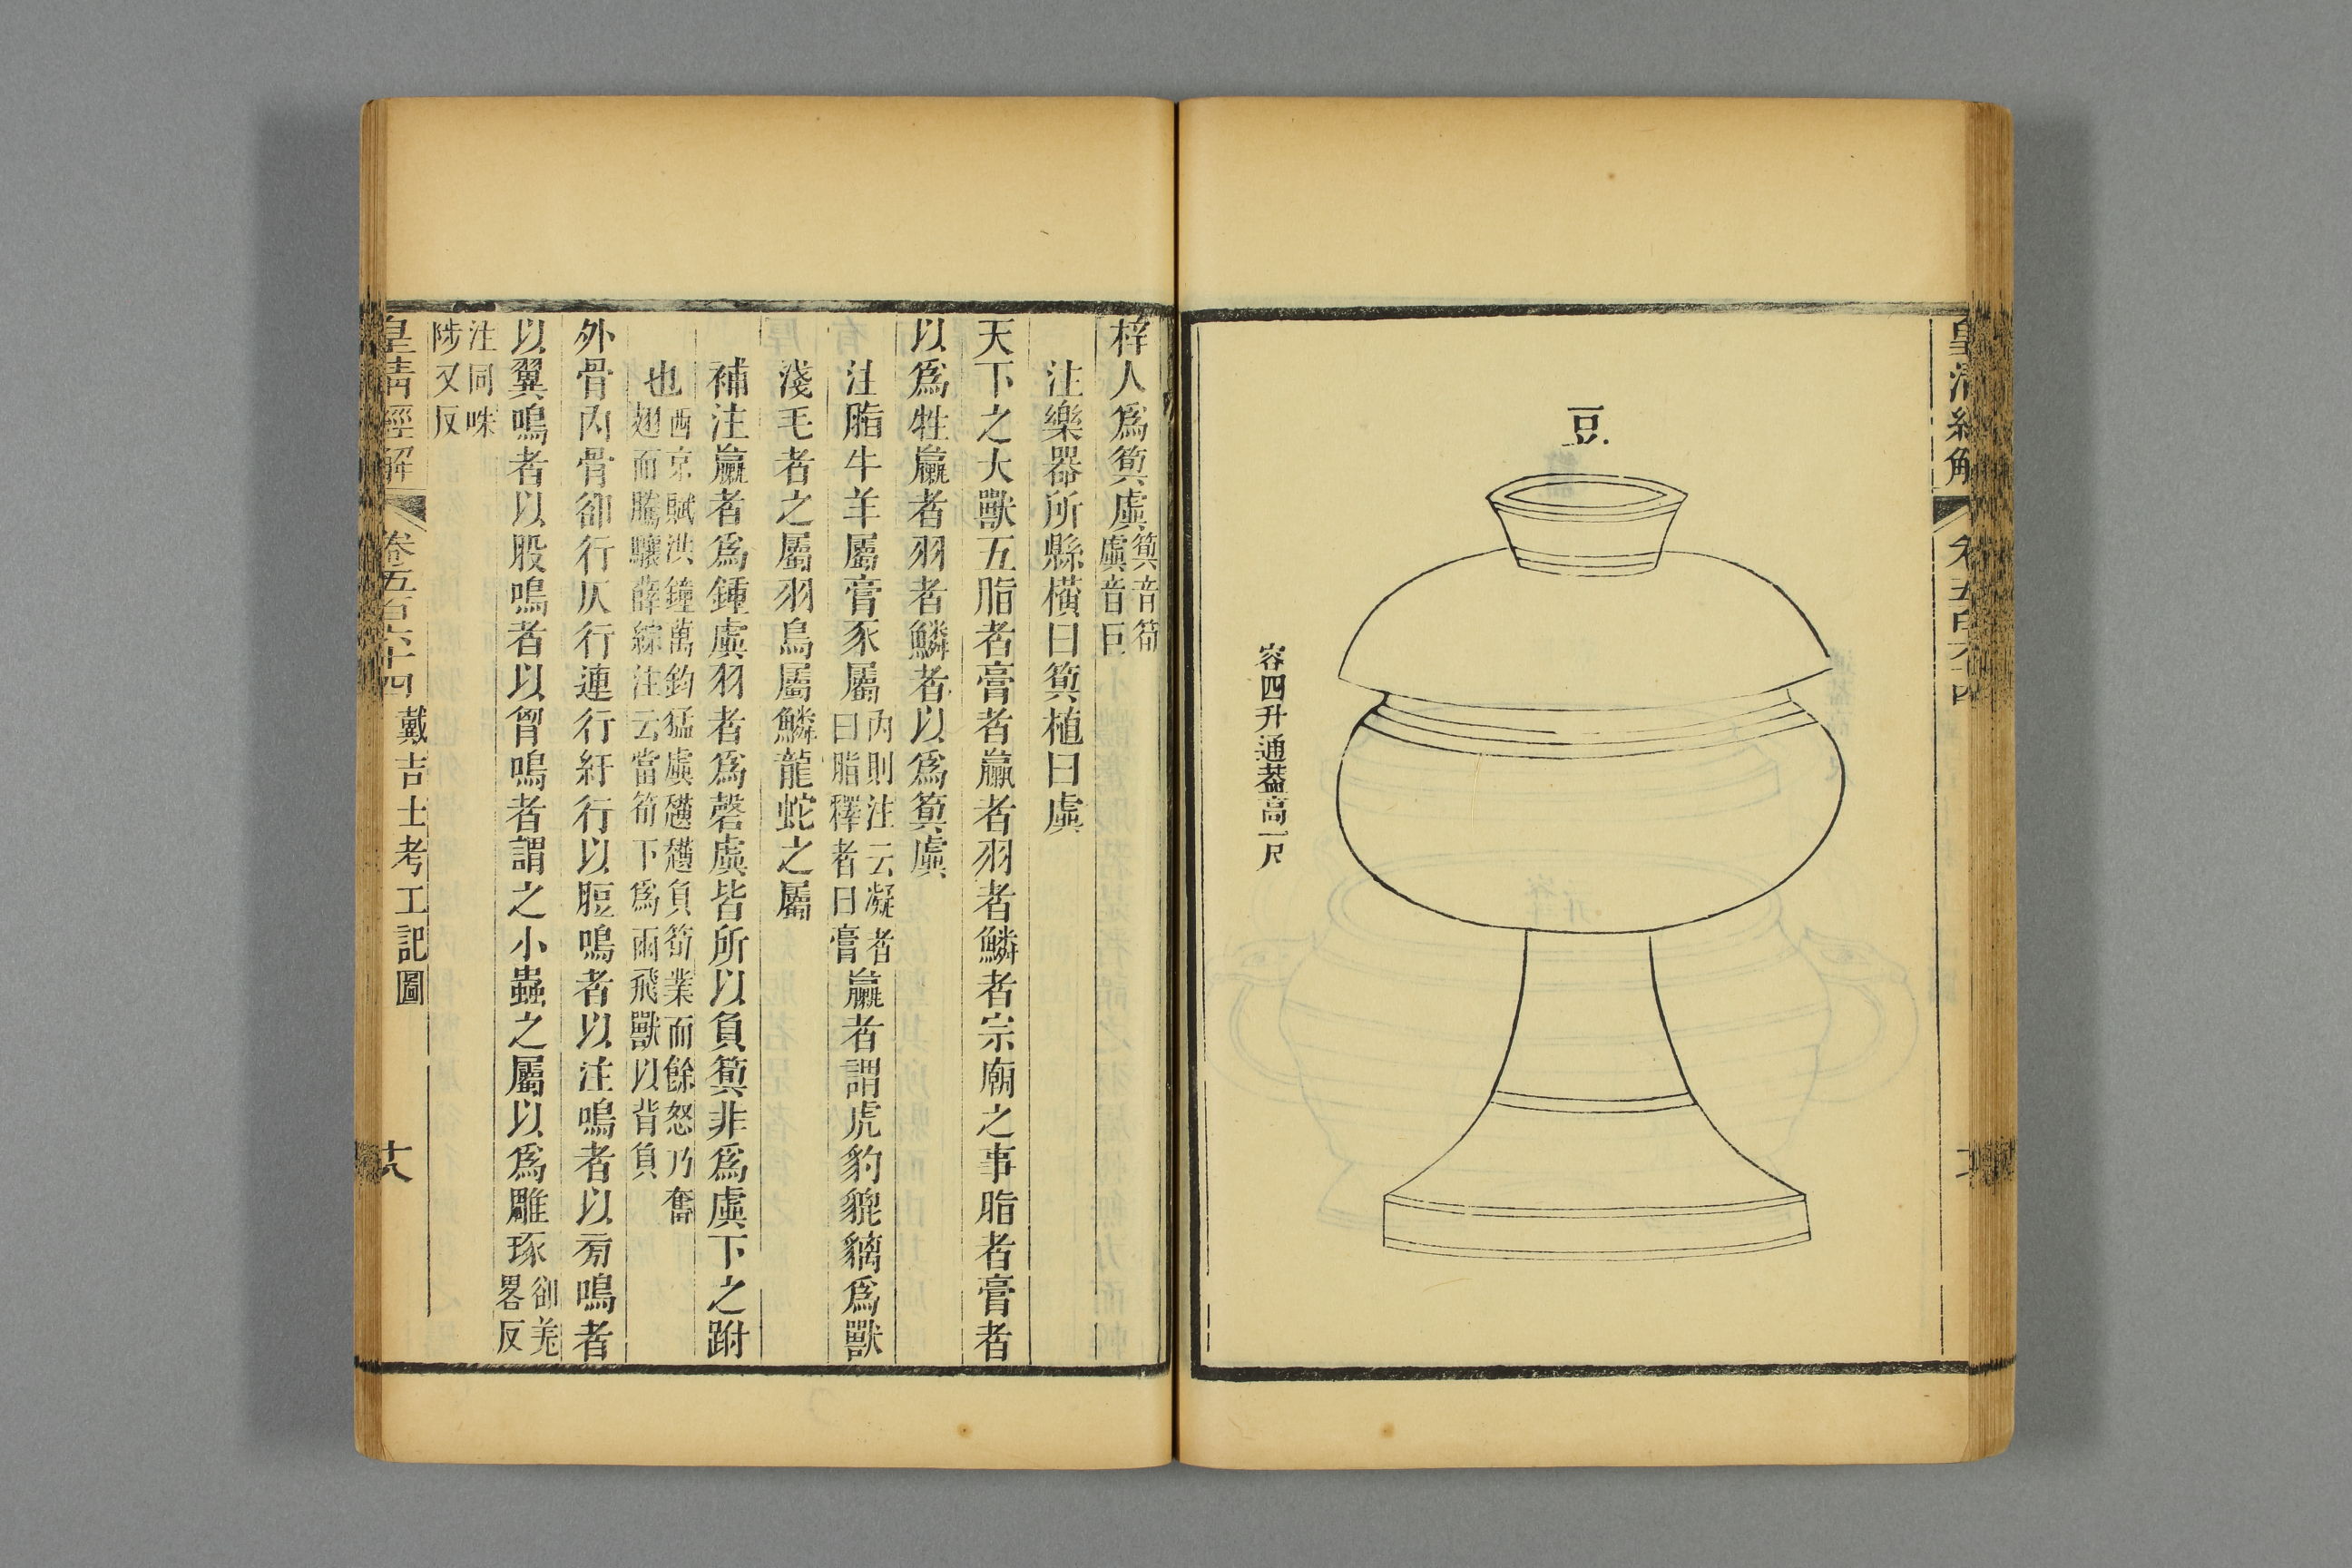 豆
容四升通葢高一尺
梓人爲筍虡筍音筍虡音巨
注樂器所縣橫曰筍植曰虡
天下之大獸五脂者膏者臝者羽者鱗者宗廟之事脂者膏者
以爲牲臝者羽者鱗者以爲筍虡
注脂牛羊屬膏豕屬內則注云凝者曰脂釋者曰膏臝者謂虎豹貔貐爲獸
淺毛者之屬羽鳥屬鱗龍蛇之屬
補注臝者爲鍾虡羽者爲磬虡皆所以負筍非爲虡下之跗
也西京賦洪鐘萬鈞猛虡趪趪負筍業而餘怒乃奮翅而騰驤薛綜注云當筍下爲兩飛獸以背負
外骨內骨卻行仄行連行紆行以脰鳴者以注鳴者以旁鳴者
以翼鳴者以股鳴者以胷鳴者謂之小蟲之屬以爲雕琢卻羌畧反
注同咮陟又反
皇清經解
卷五百六十四
戴吉士考工記圖
十八